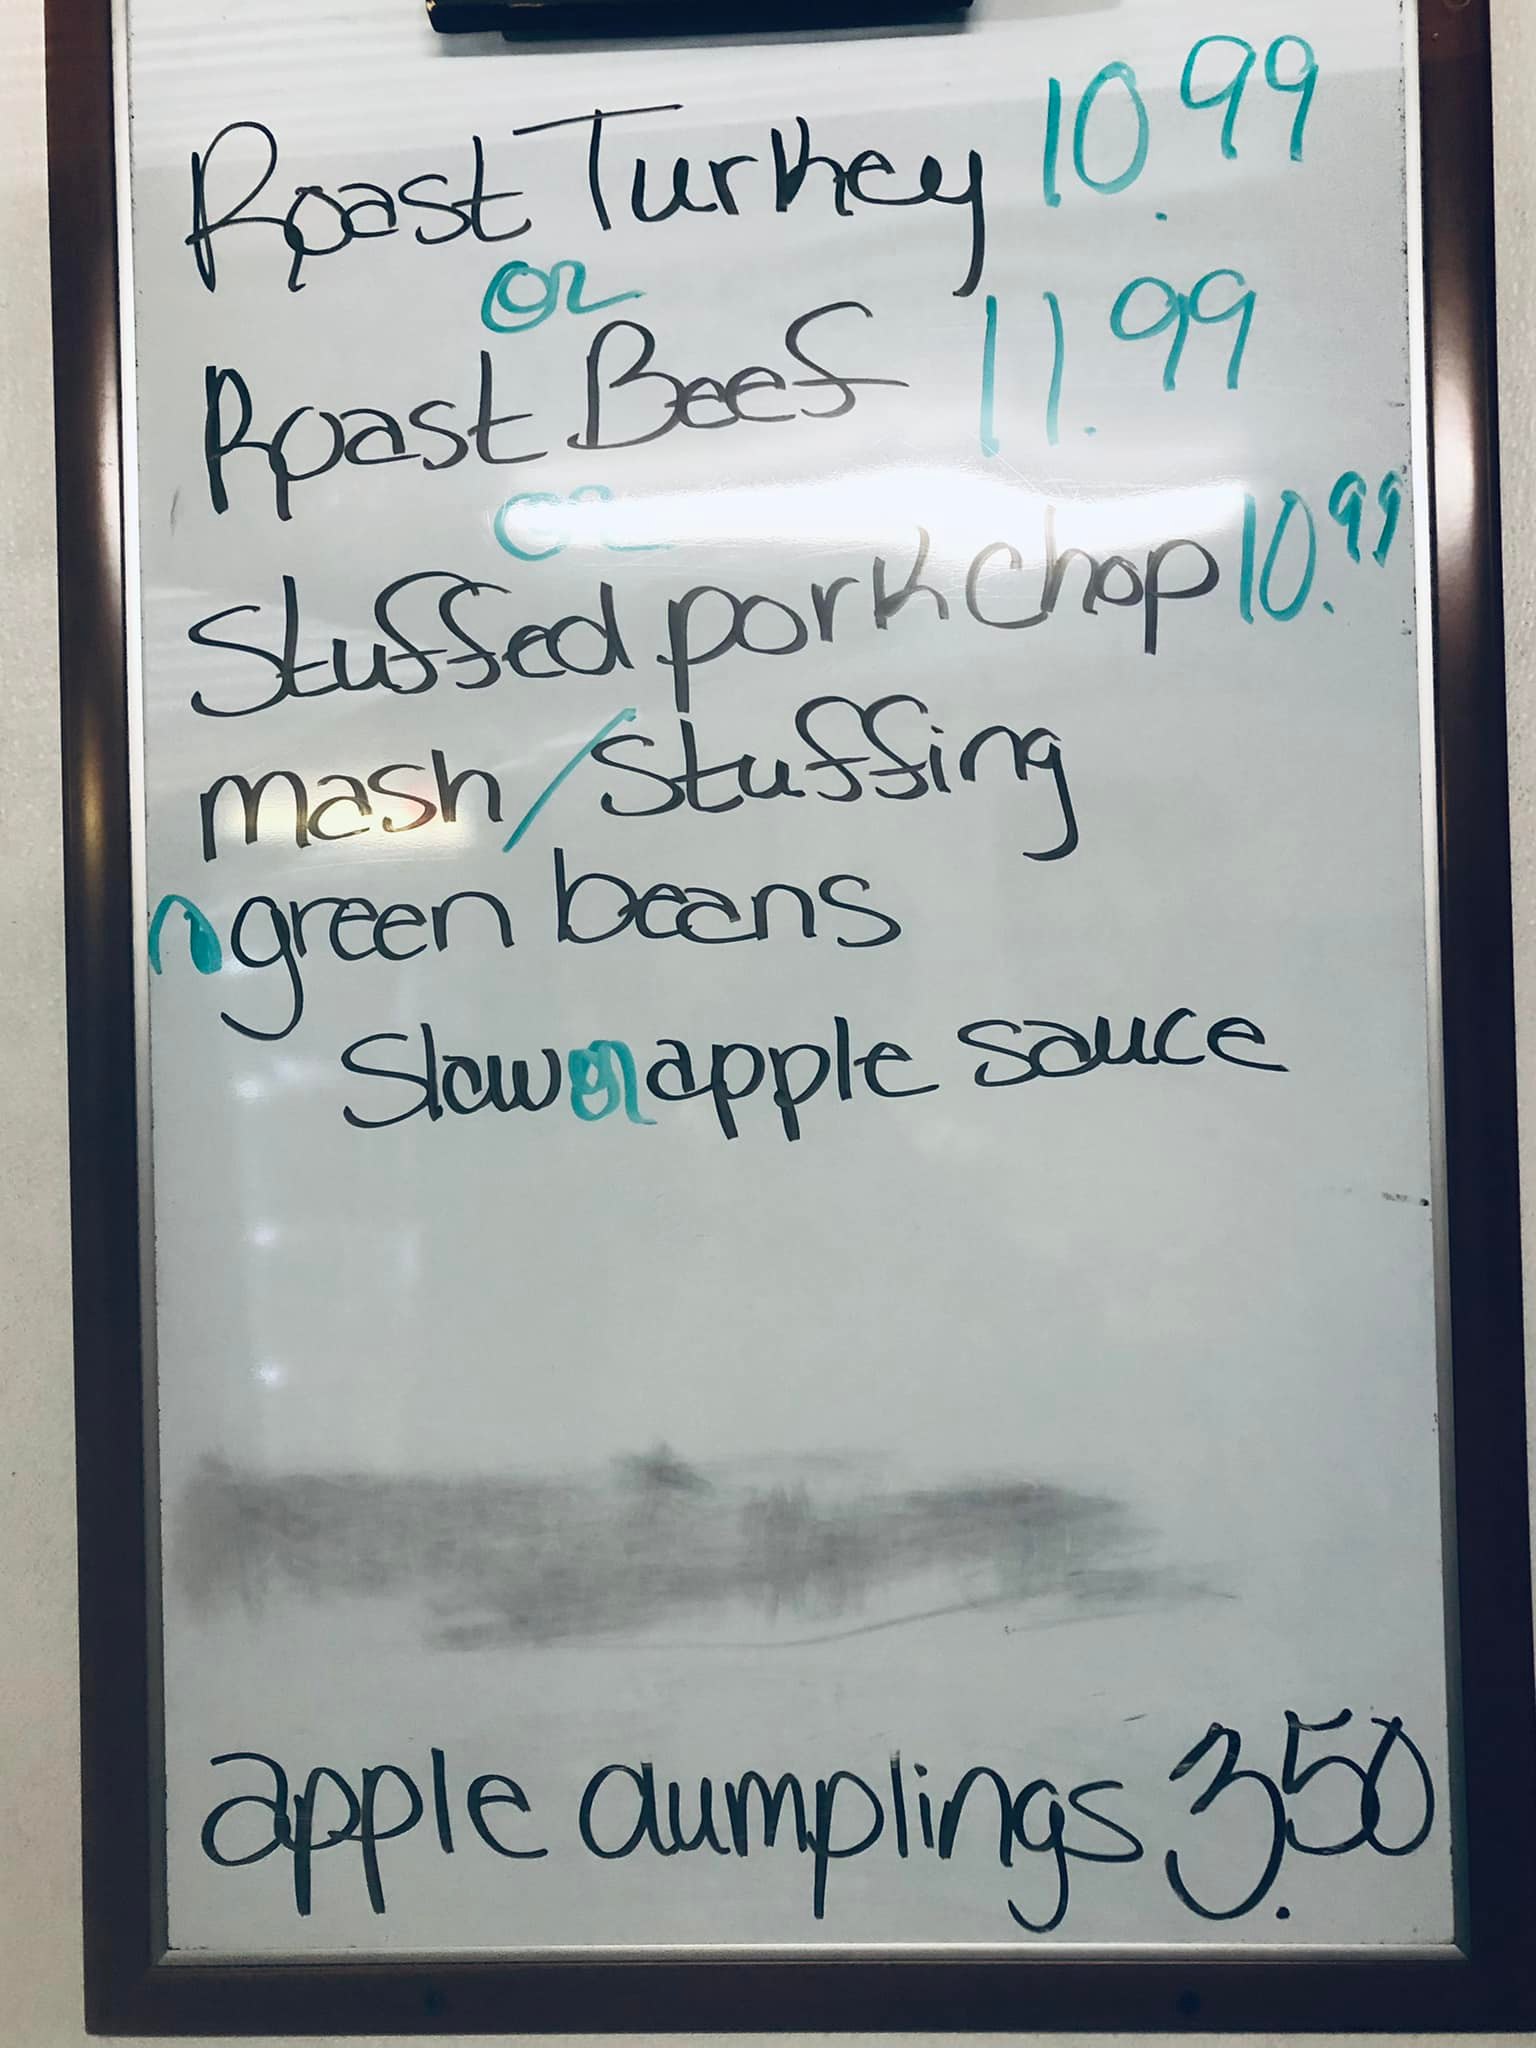 Roast Turkey 10.99
or
Roast Beef 11.99
or
Stuffed pork chop 10.99
mash / stuffing
green beans
Slaw or apple sauce
apple dumplings 3.50